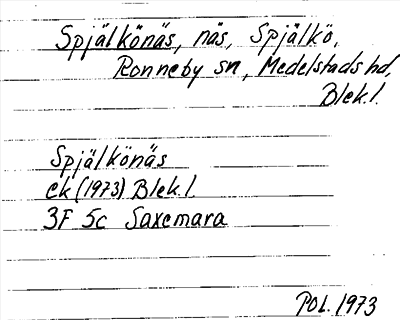 Spjälkönäs, näs, Spjälkö,
Ronneby sn, Medelstads hd,
Blek.l.
Spjälkönäs
ek (1973) Blek.l.
3F 5c Saxemara
POL. 1973